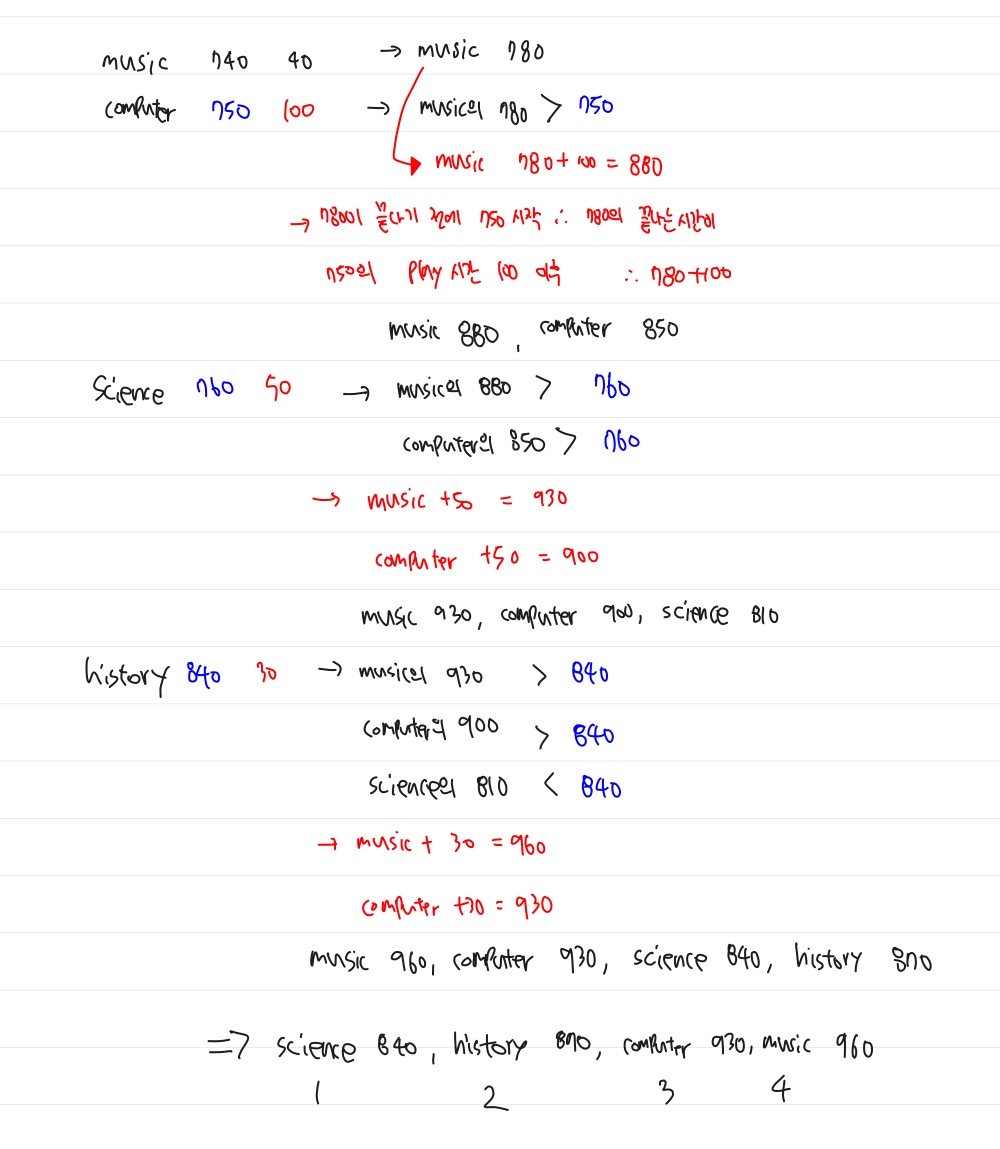 music 740 40 → music 780
computer 750 100 → music의 780 > 750
music 780 + 100 = 880
→ 780이 끝나기 전에 750 시작 ∴ 780의 끝나는 시간이
750의 play 시간 100 여축 ∴ 780+100
music 880, computer 850
Science 760 50 → music의 880 > 760
computer의 850 > 760
→ music +50 = 930
computer +50 = 900
music 930, computer 900, science 810
history 840 30 → music의 930 > 840
computer의 900 > 840
science의 810 < 840
→ music + 30 = 960
computer +30 = 930
music 960, computer 930, science 840, history 870
⇒ science 840, history 870, computer 930, music 960
1 2 3 4